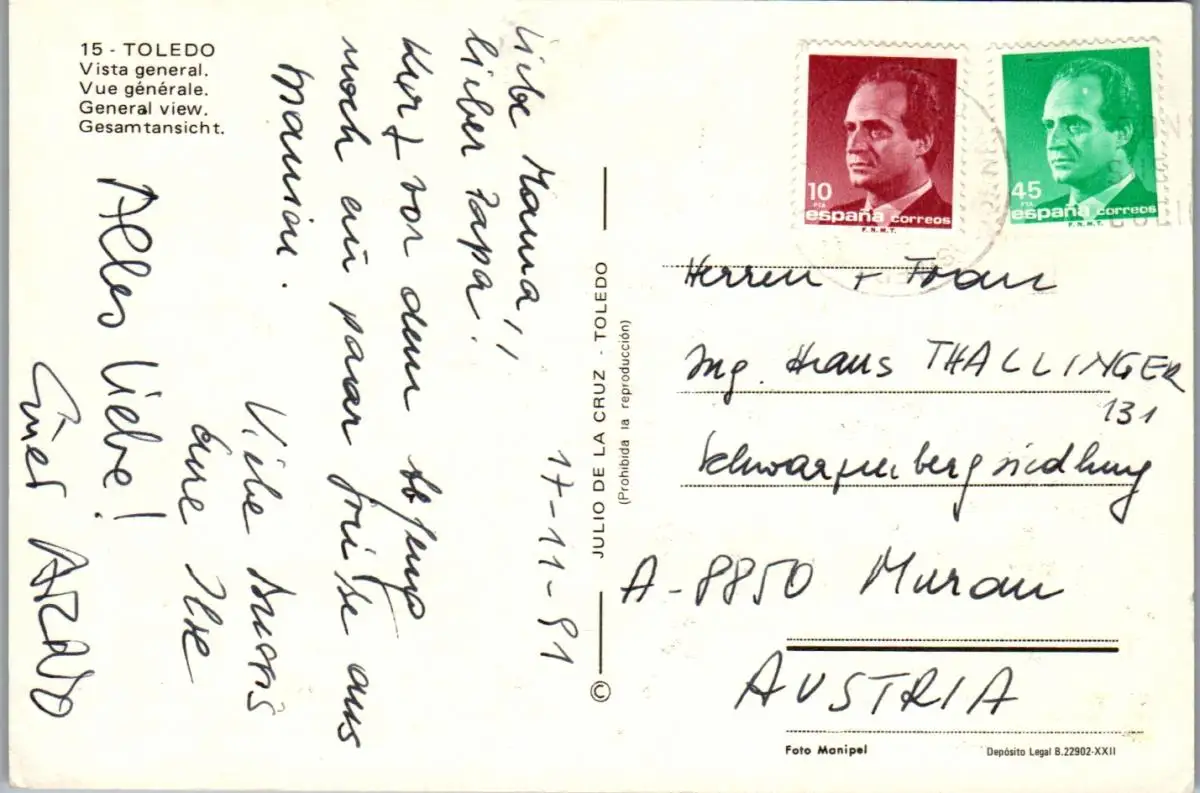 15 - TOLEDO
Vista general.
Vue générale.
General view.
Gesamtansicht.
17-11-91
Liebe Mama,
lieber Papa!
Kurz vor dem Abflug
noch ein paar Grüße aus
Madrid.
Viele Bussis
Eure Ilse
Alles Liebe!
Euer
JULIO DE LA CRUZ - TOLEDO
(Prohibida la reproducción)
©
10
PTA
españa correos
F.N.M.T.
45
PTA
españa correos
F.N.M.T.
Herrn + Frau
Ing. Hans THALLINGER
131
Schwarzenbergsiedlung
A-8850 Murau
AUSTRIA
Foto Manipel
Depósito Legal B.22902-XXII